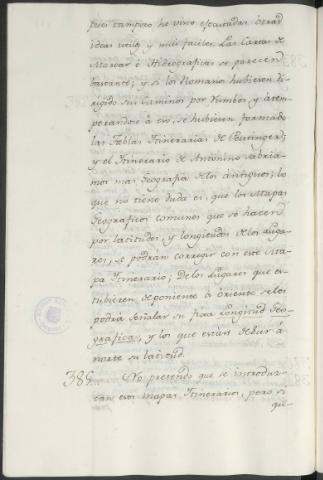 pues tampoco he visto executadas otras
ideas utiles y mui faciles. Las Cartas de
Marear è Hidrograficas se parecen
bastante; y si los Romanos hubieran di-
rigido sus Caminos por Rumbos y atem-
perandose à eso, se hubieren formado
las Tablas Itinerarias de Peutinger;
y el Itinerario de Antonino sabria-
mos mas Geografia de los antiguos; lo
que no tiene duda es, que los Mapas
Geograficos comunes que se hacen
por latitudes, y longitudes de los Luga-
res, se podran corregir con este Ma-
pa Itinerario; de los Lugares que es-
tubieren de poniente à oriente se les
podrà señalar su fixa Longitud Geo-
grafica, y los que estèn de Sur à
norte su latitud.
385... No pretendo que se introduz-
can esos Mapas Itinerarios, pero si
que-